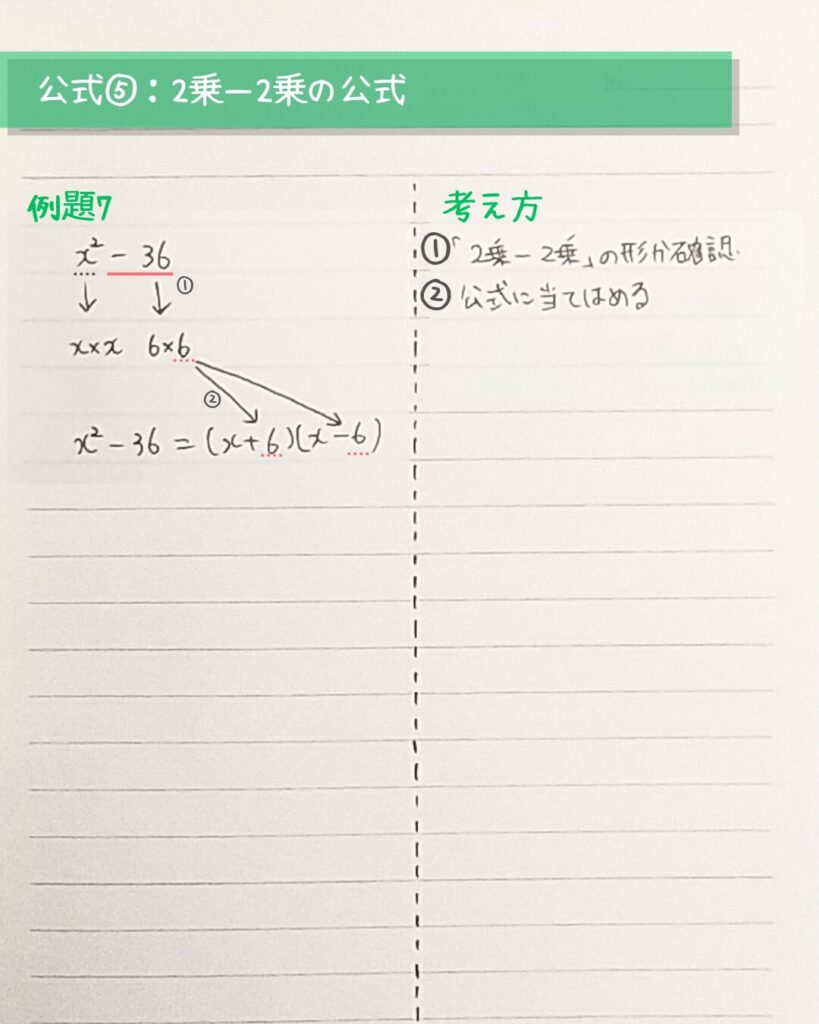 公式⑤：2乗ー2乗の公式
例題7
x² - 36
①
x×x 6×6
②
x² - 36 = (x+6)(x-6)
考え方
①「2乗ー2乗」の形か確認
②公式に当てはめる